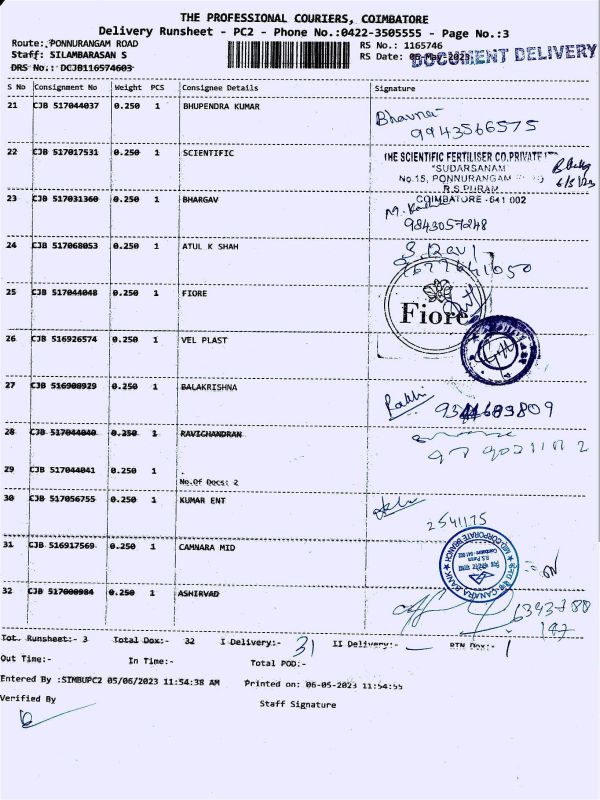 THE PROFESSIONAL COURIERS, COIMBATORE
Delivery Runsheet - PC2 - Phone No.:0422-3505555 - Page No.:3
Route: PONNURANGAM ROAD
RS No.: 1165746
Staff: SILAMBARASAN S
RS Date: 06-May-2023
DOCUMENT DELIVERY
DRS No.: DCJB116574603
S No Consignment No Weight PCS Consignee Details Signature
21 CJB 517044037 0.250 1 BHUPENDRA KUMAR
Bhavna
9943566575
22 CJB 517017531 0.250 1 SCIENTIFIC
THE SCIENTIFIC FERTILISER CO.PRIVATE
"SUDARSANAM"
No.15, PONNURANGAM
R.S.PURAM
COIMBATORE - 641 002
6/5/23
23 CJB 517031360 0.250 1 BHARGAV
9843057248
24 CJB 517068053 0.250 1 ATUL K SHAH
S. Ravi
25 CJB 517044048 0.250 1 FIORE
Fiore
26 CJB 516926574 0.250 1 VEL PLAST
27 CJB 516908929 0.250 1 BALAKRISHNA
28 CJB 517044040 0.250 1 RAVICHANDRAN
29 CJB 517044041 0.250 1 .
No.Of Docs: 2
30 CJB 517056755 0.250 1 KUMAR ENT
2541175
31 CJB 516917569 0.250 1 CAMNARA MID
CANARA BANK
MID CORPORATE BRANCH
R.S. Puram
32 CJB 517000984 0.250 1 ASHIRVAD
Tot. Runsheet:- 3 Total Dox:- 32 I Delivery:- 31 II Delivery:- — RTN Dox:- 1
Out Time:- In Time:- Total POD:-
Entered By :SIMBUPC2 05/06/2023 11:54:38 AM Printed on: 06-05-2023 11:54:55
Verified By
Staff Signature